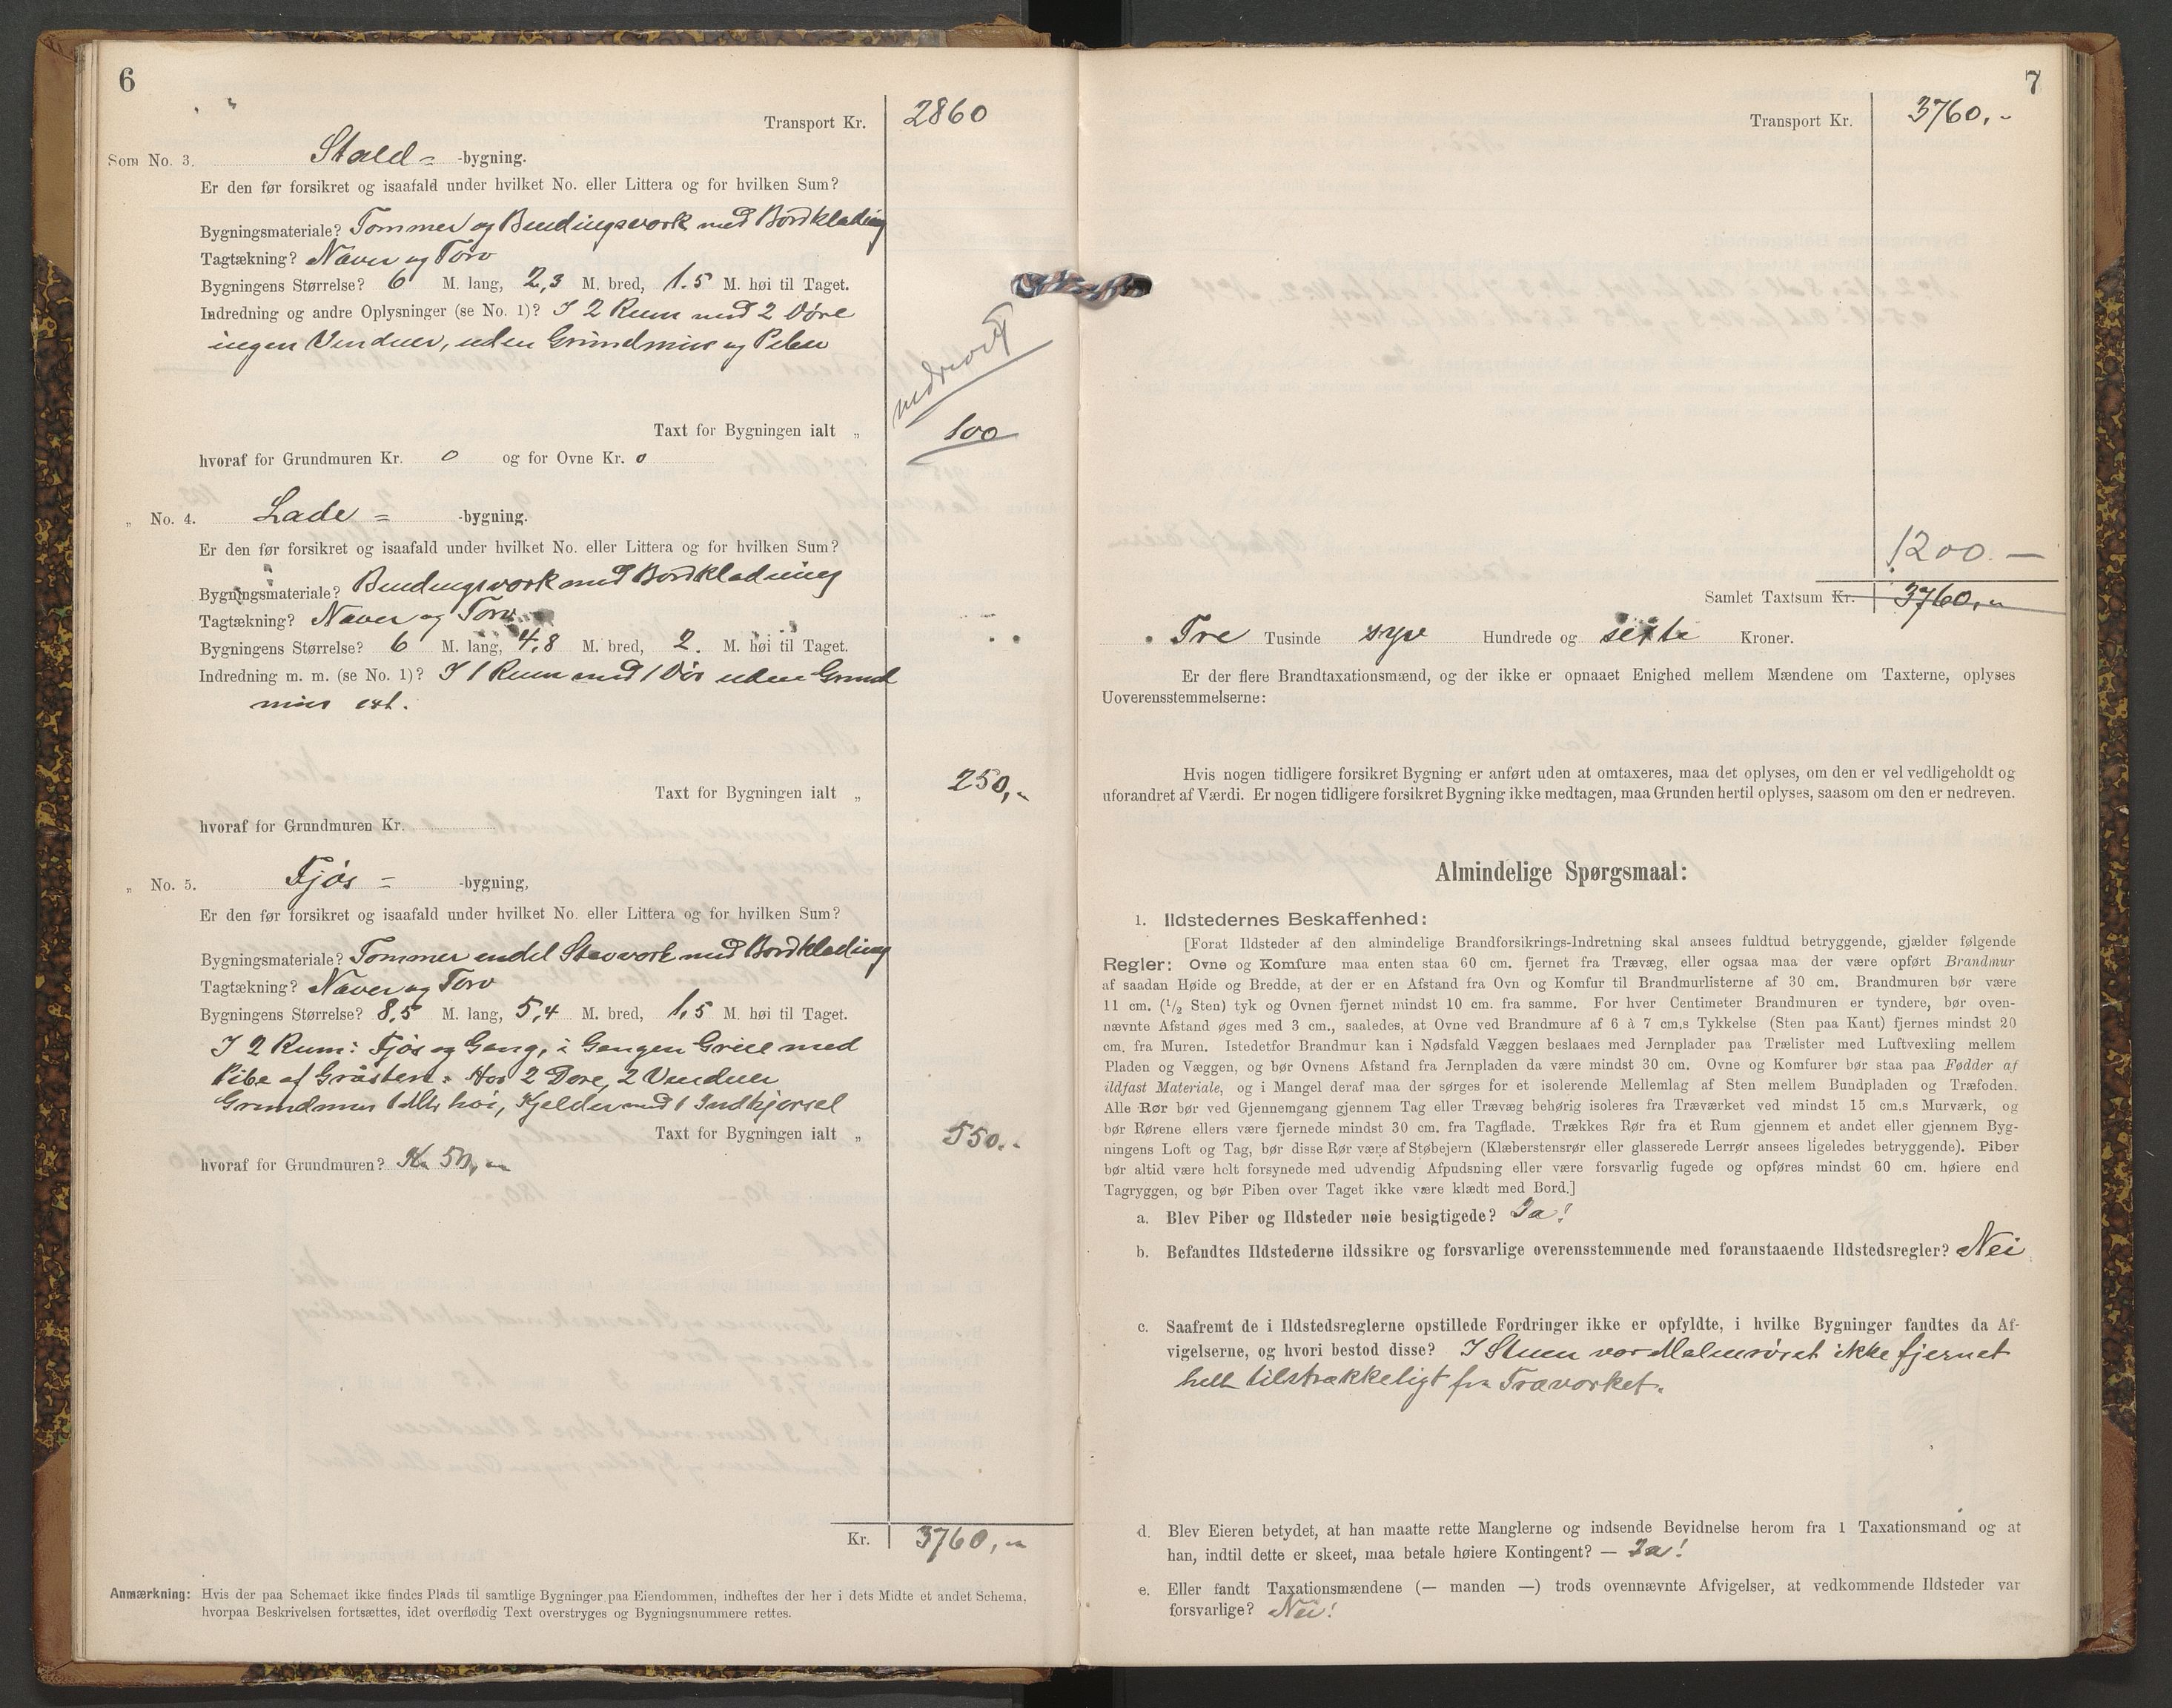 6
Transport Kr. 2860
Som No. 3. Stald= -bygning.
Er den før forsikret og isaafald under hvilket No. eller Littera og for hvilken Sum?
Bygningsmateriale? Tømmer og Bindingsværk med Bordklædning
Tagtækning? Næver og Torv
Bygningens Størrelse? 6 M. lang, 2,3 M. bred, 1.5 M. høi til Taget.
Indredning og andre Oplysninger (se No. 1)? I 2 Rum med 2 Døre
ingen Vinduer, uden Grundmur og Piber
nedrevet
Taxt for Bygningen ialt „ 100
hvoraf for Grundmuren Kr. 0 og for Ovne Kr. 0
„ No. 4. Lade= -bygning.
Er den før forsikret og isaafald under hvilket No. eller Littera og for hvilken Sum?
Bygningsmateriale? Bindingsværk med Bordklædning
Tagtækning? Næver og Torv
Bygningens Størrelse? 6 M. lang, 4,8 M. bred, 2. M. høi til Taget.
Indredning m. m. (se No. 1)? I 1 Rum med 1 Dør uden Grund
mur
Taxt for Bygningen ialt „ 250,-
hvoraf for Grundmuren Kr.
„ No. 5. Fjøs= -bygning,
Er den før forsikret og isaafald under hvilket No. eller Littera og for hvilken Sum?
Bygningsmateriale? Tømmer endel Stavværk med Bordklædning
Tagtækning? Næver og Torv
Bygningens Størrelse? 8,5 M. lang, 5,4 M. bred, 1,5 M. høi til Taget.
I 2 Rum: Fjøs og Gang, i Gangen Grue med
Pibe af Gråsten. Har 2 Døre, 2 Vinduer
Grundmur 1 Mtr høi, Kjelder med 1 Indkjørsel
Taxt for Bygningen ialt „ 550.-
hvoraf for Grundmuren? Kr 50,-
Kr. 3760,-
Anmærkning: Hvis der paa Schemaet ikke findes Plads til samtlige Bygninger paa Eiendommen, indheftes der her i dets Midte et andet Schema,
hvorpaa Beskrivelsen fortsættes, idet overflødig Text overstryges og Bygningsnummere rettes.
7
Transport Kr. 3760,-
1200.—
Samlet Taxtsum Kr. 3760,-
Tre Tusinde syv Hundrede og sexti Kroner.
Er der flere Brandtaxationsmænd, og der ikke er opnaaet Enighed mellem Mændene om Taxterne, oplyses
Uoverensstemmelserne:
Hvis nogen tidligere forsikret Bygning er anført uden at omtaxeres, maa det oplyses, om den er vel vedligeholdt og
uforandret af Værdi. Er nogen tidligere forsikret Bygning ikke medtagen, maa Grunden hertil oplyses, saasom om den er nedreven.
Almindelige Spørgsmaal:
1. Ildstedernes Beskaffenhed:
[Forat Ildsteder af den almindelige Brandforsikrings-Indretning skal ansees fuldtud betryggende, gjælder følgende
Regler: Ovne og Komfure maa enten staa 60 cm. fjernet fra Trævæg, eller ogsaa maa der være opført Brandmur
af saadan Høide og Bredde, at der er en Afstand fra Ovn og Komfur til Brandmurlisterne af 30 cm. Brandmuren bør være
11 cm. (1/2 Sten) tyk og Ovnen fjernet mindst 10 cm. fra samme. For hver Centimeter Brandmuren er tyndere, bør oven-
nævnte Afstand øges med 3 cm., saaledes, at Ovne ved Brandmure af 6 à 7 cm.s Tykkelse (Sten paa Kant) fjernes mindst 20
cm. fra Muren. Istedetfor Brandmur kan i Nødsfald Væggen beslaaes med Jernplader paa Trælister med Luftvexling mellem
Pladen og Væggen, og bør Ovnens Afstand fra Jernpladen da være mindst 30 cm. Ovne og Komfurer bør staa paa Fødder af
ildfast Materiale, og i Mangel deraf maa der sørges for et isolerende Mellemlag af Sten mellem Bundpladen og Træfoden.
Alle Rør bør ved Gjennemgang gjennem Tag eller Trævæg behørig isoleres fra Træværket ved mindst 15 cm.s Murværk, og
bør Rørene ellers være fjernede mindst 30 cm. fra Tagflade. Trækkes Rør fra et Rum gjennem et andet eller gjennem Byg-
ningens Loft og Tag, bør disse Rør være af Støbejern (Klæberstensrør eller glasserede Lerrør ansees ligeledes betryggende). Piber
bør altid være helt forsynede med udvendig Afpudsning eller være forsvarlig fugede og opføres mindst 60 cm. høiere end
Tagryggen, og bør Piben over Taget ikke være klædt med Bord.]
a. Blev Piber og Ildsteder nøie besigtigede? Ja!
b. Befandtes Ildstederne ildssikre og forsvarlige overensstemmende med foranstaaende Ildstedsregler? Nei
c. Saafremt de i Ildstedsreglerne opstillede Fordringer ikke er opfyldte, i hvilke Bygninger fandtes da Af-
vigelserne, og hvori bestod disse? I Stuen var Malmrøret ikke fjernet
helt tilstrækkeligt fra Træværket.
d. Blev Eieren betydet, at han maatte rette Manglerne og indsende Bevidnelse herom fra 1 Taxationsmand og at
han, indtil dette er skeet, maa betale høiere Kontingent? — Ja!
e. Eller fandt Taxationsmændene (— manden —) trods ovennævnte Afvigelser, at vedkommende Ildsteder var
forsvarlige? Nei!